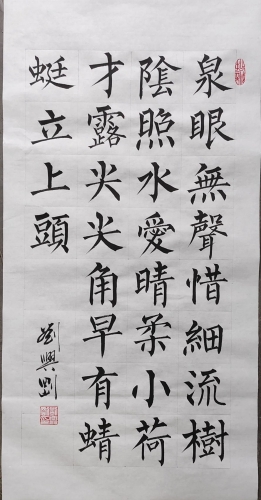 泉眼無聲惜細流樹
陰照水愛晴柔小荷
才露尖尖角早有蜻
蜓立上頭
劉興剛